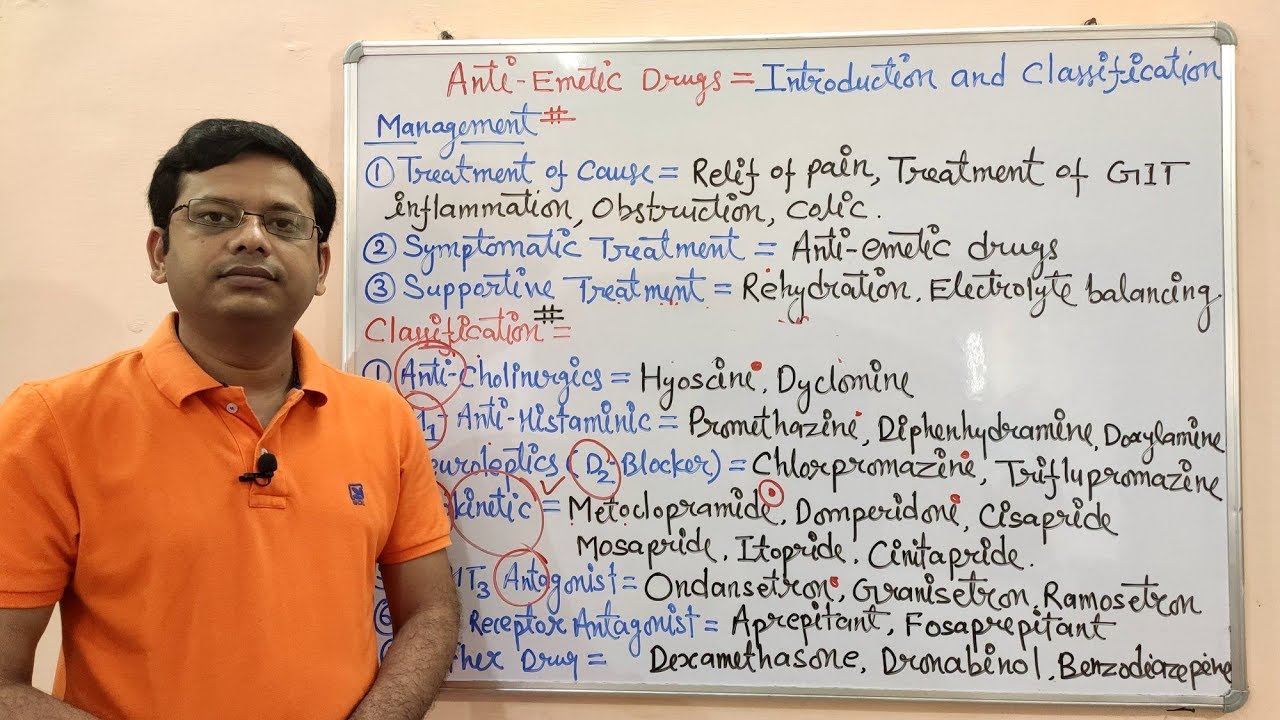 Anti-Emetic Drugs = Introduction and Classification
Management #
① Treatment of Cause = Relif of pain, Treatment of GIT
inflammation, Obstruction, Colic.
② Symptomatic Treatment = Anti-emetic drugs
③ Supportine Treatment = Rehydration, Electrolyte balancing
Classification # =
① Anti-Cholinergics = Hyoscine, Dyclomine
1- Anti-Histaminic = Promethazine, Diphenhydramine, Doxylamine
euroleptics (D2-Blocker) = Chlorpromazine, Triflupromazine
kinetic = Metoclopramide, Domperidone, Cisapride
Mosapride, Itopride, Cinitapride.
T3 Antogonist = Ondansetron, Granisetron, Ramosetron
⑥ Receptor Antagonist = Aprepitant, Fosaprepitant
ther Drug = Dexamethasone, Dronabinol, Benzodiazepine